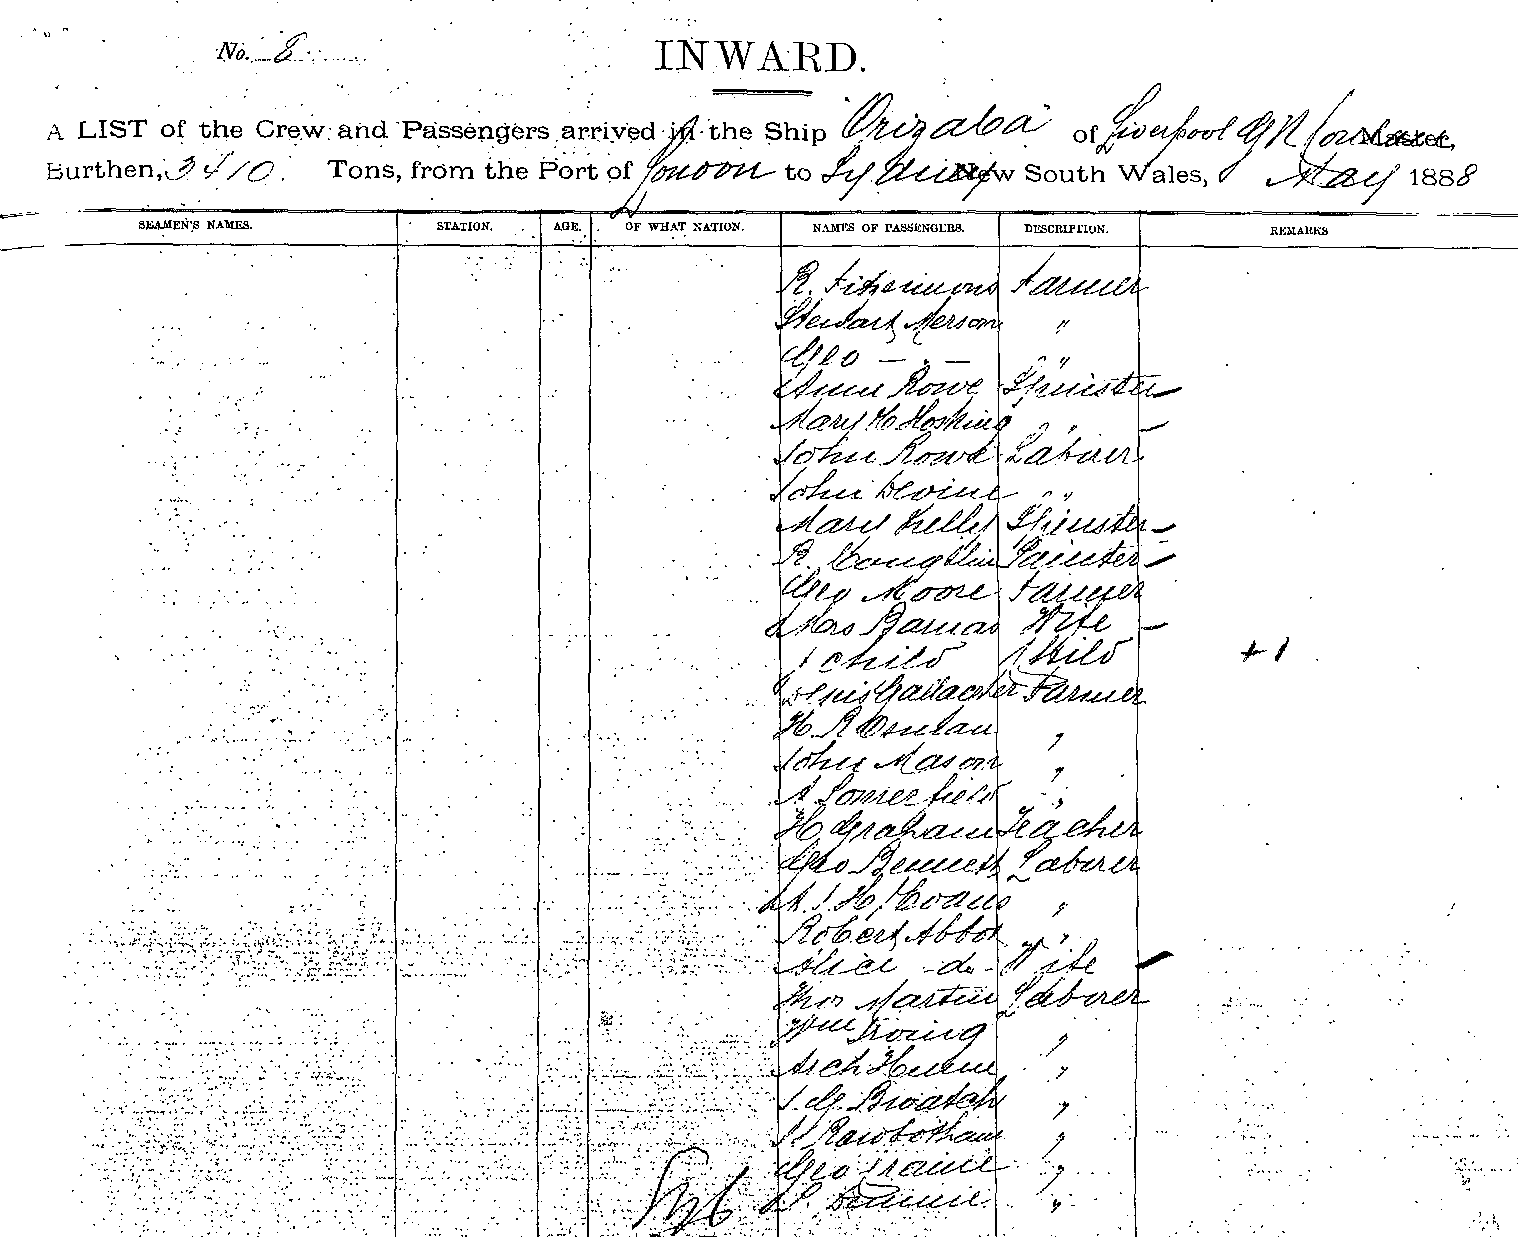 No. 8
INWARD.
A LIST of the Crew and Passengers arrived in the Ship "Orizaba" of Liverpool G N Master,
Burthen, 3410. Tons, from the Port of London to Sydney New South Wales, May 1888
SEAMEN'S NAMES. STATION. AGE. OF WHAT NATION. NAMES OF PASSENGERS. DESCRIPTION. REMARKS
R. Fitzsimons Farmer
Stewart Merson "
Geo — " — "
Annie Rowe Spinster
Mary H Hosking "
John Rowe Laborer
John Devine "
Mary Kelly Spinster
R. Coughlin Painter
Geo Moore Farmer
Mrs Barnas Wife
1 child Child + 1
Denis Gallagher Farmer
H. R "
John Mason "
A Somerfield "
H. Graham Teacher
Geo Bennett Laborer
A. J. H. Evans "
Robert Abbot "
Alice -do- Wife
Thos Martin Laborer
Wm Irving "
Arch Hume "
J. G. "
Rowbotham "
Geo "
"